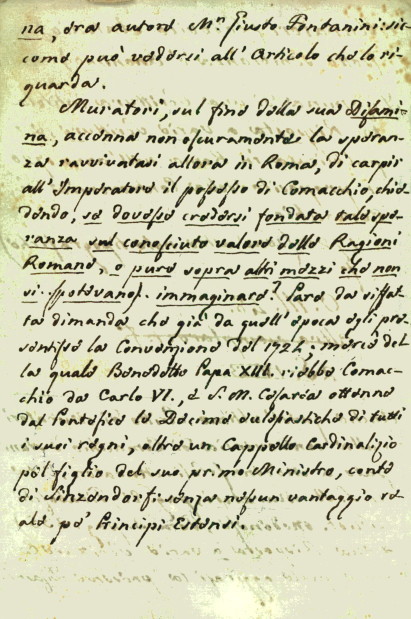 na, era autore Mn. Giusto Fontanini: sic-
come può vedersi all' Articolo che lo ri-
guarda.
Muratori, sul fine della sua Disami-
na, accenna non oscuramente la speran-
za ravvivatasi allora in Roma, di carpir
all' Imperatore il possesso di Comacchio, chie-
dendo, se dovesse credersi fondata tale spe-
ranza sul conosciuto valore delle Ragioni
Romane, o pure sopra altri mezzi che non
si potevano immaginare? Pare da siffat-
ta dimanda che già da quell' epoca egli pre-
sentisse la Convenzione del 1724; mercè del-
la quale Benedetto Papa XIII. riebbe Comac-
chio da Carlo VI., e S. M. Cesarea ottenne
dal Pontefice le Decime eclesiastiche di tutti
i suoi regni, oltre un Cappello Cardinalizio
pel figlio del suo primo Ministro, conte
di Sinzendorf: senza nessun vantaggio re-
ale pe' Principi Estensi.